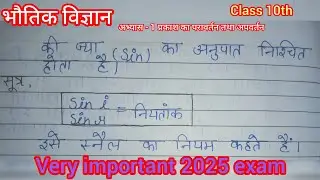 भौतिक विज्ञान
Class 10th
अभ्यास - 1 प्रकाश का परावर्तन तथा अपवर्तन
की ज्या (sin) का अनुपात निश्चित
होता है।
सूत्र,
sin i / sin r = नियतांक
इसे स्नैल का नियम कहते हैं।
Very important 2025 exam